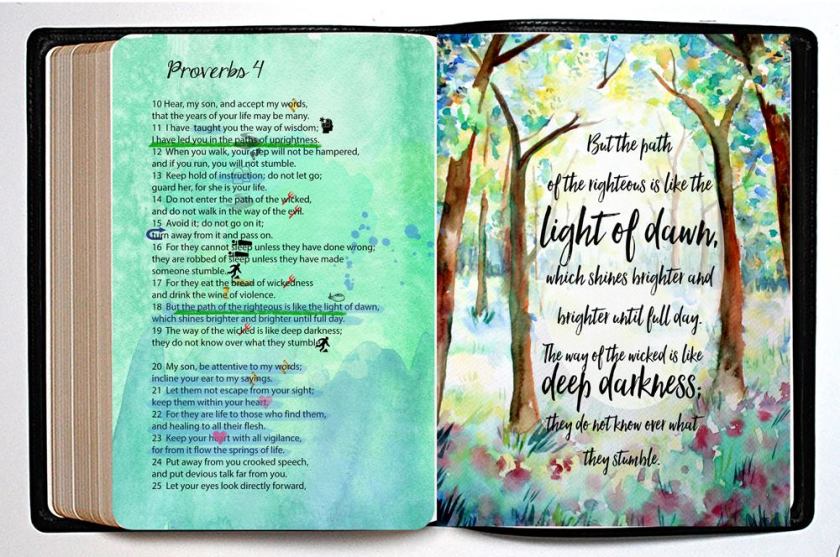 Proverbs 4
10 Hear, my son, and accept my words,
that the years of your life may be many.
11 I have taught you the way of wisdom;
I have led you in the paths of uprightness.
12 When you walk, your step will not be hampered,
and if you run, you will not stumble.
13 Keep hold of instruction; do not let go;
guard her, for she is your life.
14 Do not enter the path of the wicked,
and do not walk in the way of the evil.
15 Avoid it; do not go on it;
turn away from it and pass on.
16 For they cannot sleep unless they have done wrong;
they are robbed of sleep unless they have made
someone stumble.
17 For they eat the bread of wickedness
and drink the wine of violence.
18 But the path of the righteous is like the light of dawn,
which shines brighter and brighter until full day.
19 The way of the wicked is like deep darkness;
they do not know over what they stumble.
20 My son, be attentive to my words;
incline your ear to my sayings.
21 Let them not escape from your sight;
keep them within your heart.
22 For they are life to those who find them,
and healing to all their flesh.
23 Keep your heart with all vigilance,
for from it flow the springs of life.
24 Put away from you crooked speech,
and put devious talk far from you.
25 Let your eyes look directly forward,
But the path
of the righteous is like the
light of dawn,
which shines brighter and
brighter until full day.
The way of the wicked is like
deep darkness;
they do not know over what
they stumble.